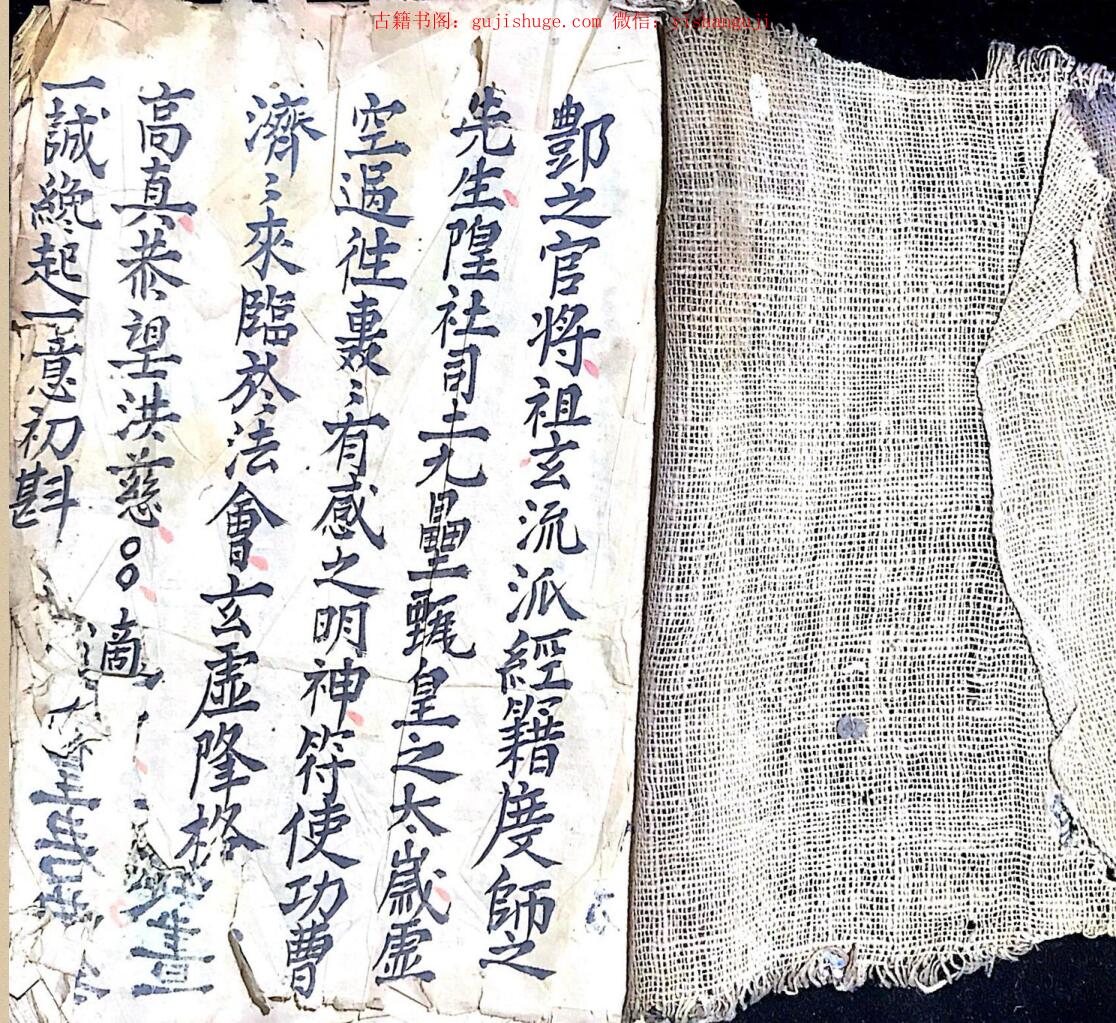 古籍书阁：gujishuge.com 微信：yishanguji
酆之官将祖玄流派經籍度師之
先生隍社司土九壘皇之太歲虛
空過徃轟〻有感之明神符使功曹
濟〻來臨於法會玄虛降格
高真恭望洪慈〇〇適
一誠纔起一意初斟